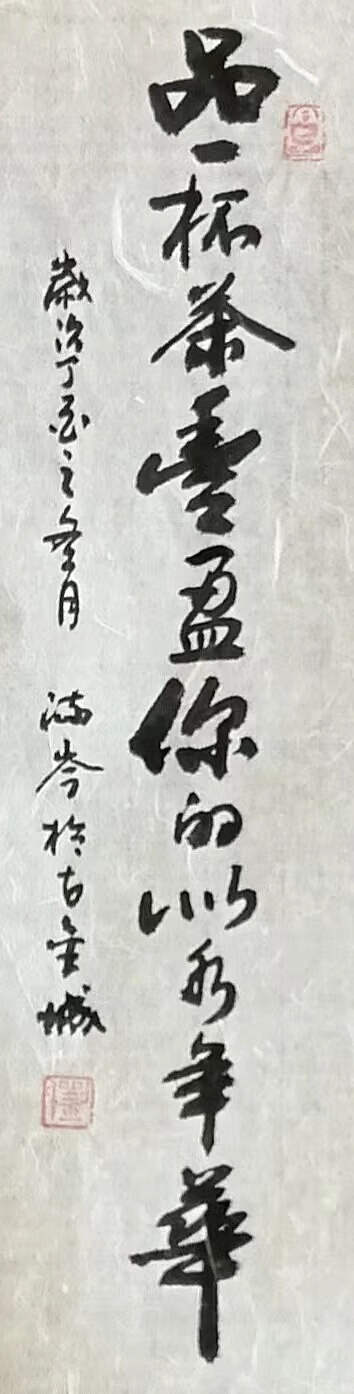 品一杯茶豐盈你的似水年華
歲次丁酉之冬月 满岑於古金城